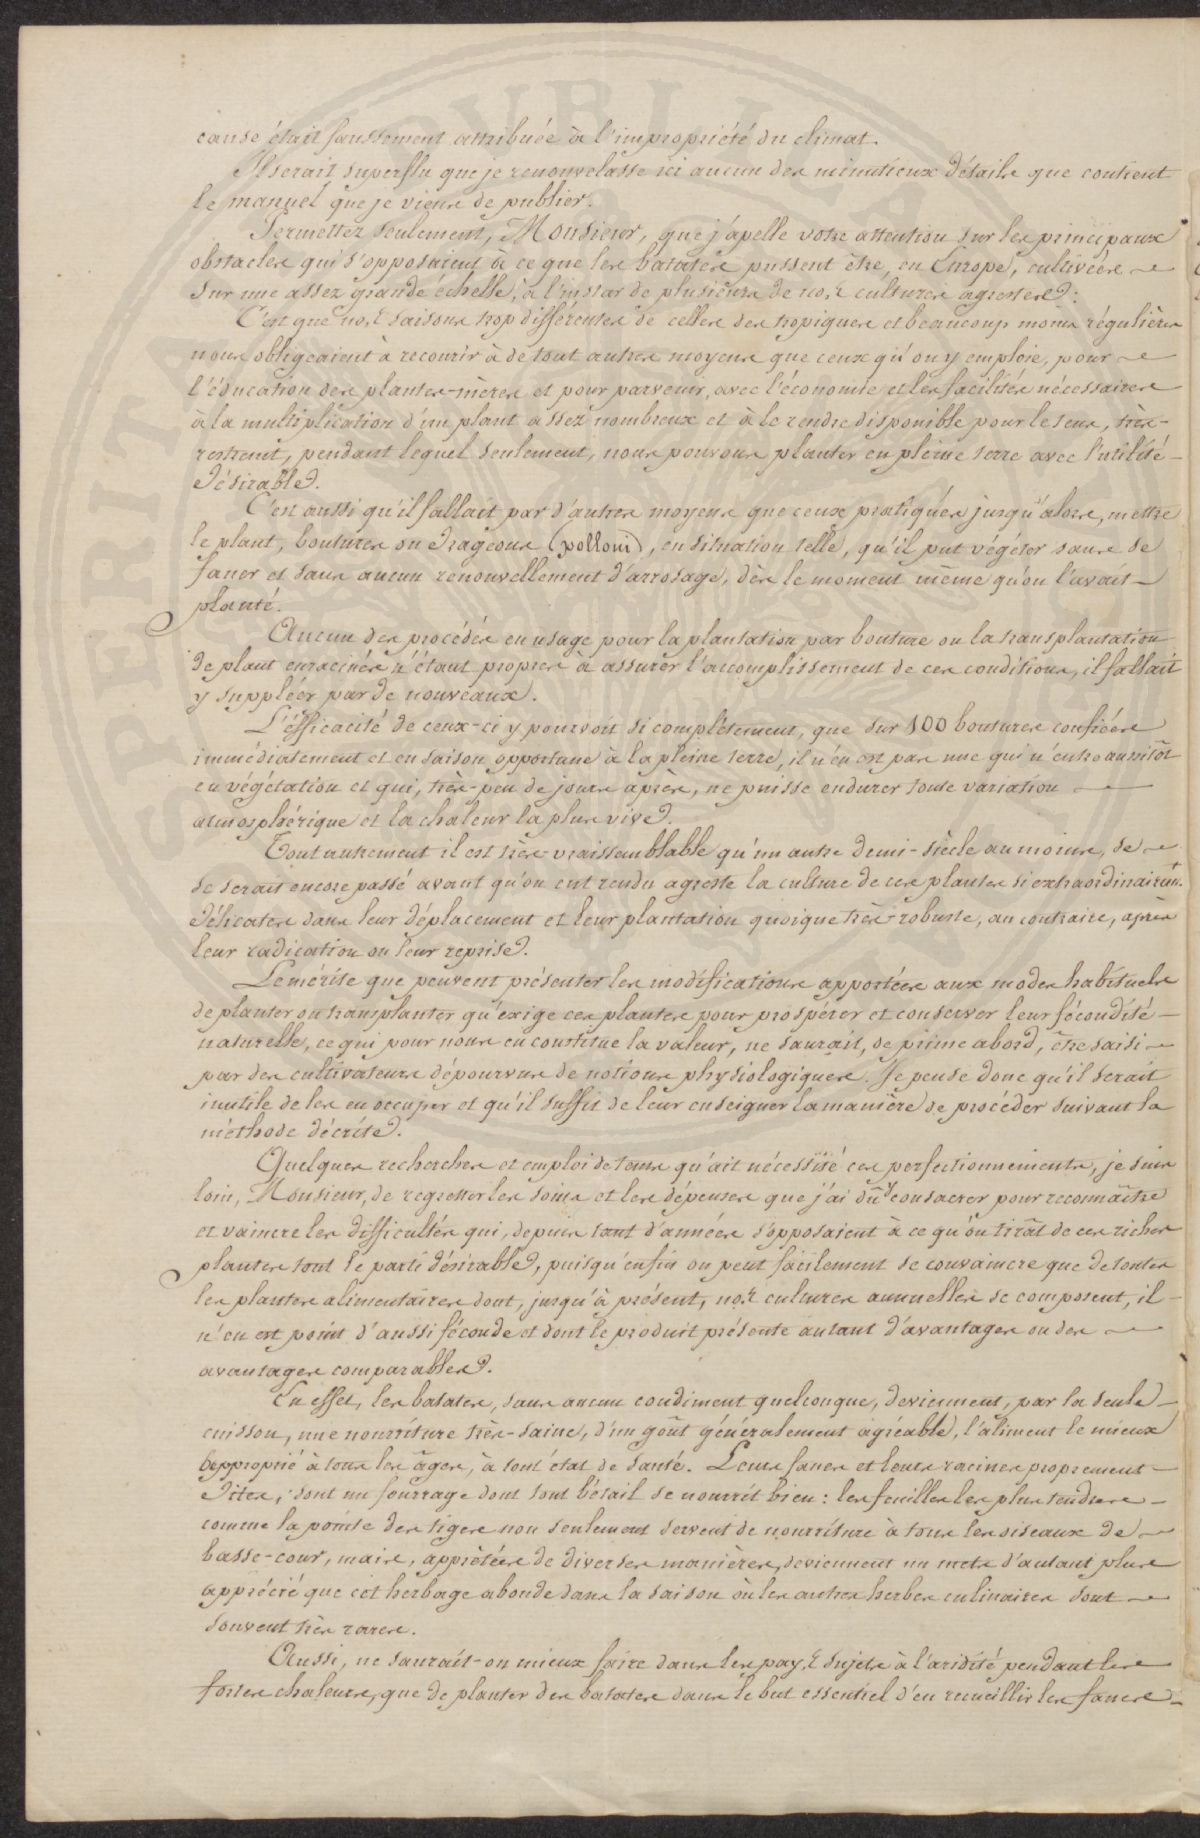 cause était faussement attribuée à l'impropriété du climat.
Il serait superflu que je renouvelasse ici aucun des minutieux détails que contient
le manuel que je viens de publier.
Permettez seulement, Monsieur, que j'apelle votre attention sur les principaux
obstacles qui s'opposaient à ce que les batates pussent être, en Europe, cultivées
sur une assez grande échelle, à l'instar de plusieurs de nos cultures agrestes :
C'est que nos saisons trop différentes de celles des tropiques et beaucoup moins régulières
nous obligeaient à recourir à de tout autres moyens que ceux qu'on y emploie, pour
l'éducation des plantes-mères et pour parvenir, avec l'économie et les facilités nécessaires
à la multiplication d'un plant assez nombreux et à le rendre disponible pour le tems, très-
restreint, pendant lequel seulement, nous pouvons planter en pleine terre avec l'utilité
désirable.
C'est aussi qu'il fallait par d'autres moyens que ceux pratiqués jusqu'alors, mettre
le plant, boutures ou drageons (polloni), en situation telle, qu'il put végéter sans se
faner et sans aucun renouvellement d'arrosage, dès le moment même qu'on l'avait
planté.
Aucun des procédés en usage pour la plantation par bouture ou la transplantation
de plant enracinés n'étant propres à assurer l'accomplissement de ces conditions, il fallait
y suppléer par de nouveaux.
L'éfficacité de ceux-ci y pourvoit si complètement, que sur 100 boutures confiées
immédiatement et en saison opportune à la pleine terre, il n'en est pas une qui n'entre aussitôt
en végétation et qui, très-peu de jours après, ne puisse endurer toute variation
atmosphérique et la chaleur la plus vive.
Tout autrement il est très-vraissemblable qu'un autre demi-siècle au moins, se
se serait encore passé avant qu'on eut rendu agreste la culture de ces plantes si extraordinairem.t
délicates dans leur déplacement et leur plantation quoique très-robuste, au contraire, après
leur radication ou leur reprise.
Le mérite que peuvent présenter les modifications apportées aux modes habituels
de planter ou transplanter qu'éxige ces plantes pour prospérer et conserver leur fécondité
naturelle, ce qui pour nous en constitue la valeur, ne saurait, de prime abord, être saisi
par des cultivateurs dépourvus de notions physiologiques. Je pense donc qu'il serait
inutile de les en occuper et qu'il suffit de leur enseigner la manière de procéder suivant la
méthode décrite.
Quelques recherches et emploi de tems qu'ait nécessité ces perfectionnements, je suis
loin, Monsieur, de regretter les soins et les dépenses que j'ai dû y consacrer pour reconnaître
et vaincre les difficultés qui, depuis tant d'années s'opposaient à ce qu'on tirât de ces riches
plantes tout le parti désirable, puisqu'enfin on peut facilement se convaincre que de toutes
les plantes alimentaires dont, jusqu'à présent, nos cultures annuelles se composent, il
n'en est point d'aussi féconde et dont le produit présente autant d'avantages ou des
avantages comparables.
En effet, les batates, sans aucun condiment quelconque, deviennent, par la seule
cuisson, une nourriture très-saine, d'un goût généralement agréable, l'aliment le mieux
approprié à tous les âges, à tout état de santé. Leurs fanes et leurs racines proprement
dites, sont un fourrage dont tout bétail se nourrit bien : les feuilles les plus tendres
comme la pointe des tiges non seulement servent de nourriture à tous les oiseaux de
basse-cour, mais, apprêtées de diverses manières, deviennent un mets d'autant plus
apprécié que cet herbage abonde dans la saison où les autres herbes culinaires sont
souvent très rares.
Aussi, ne saurait-on mieux faire dans les pays sujets à l'aridité pendant les
fortes chaleurs, que de planter des batates dans le but essentiel d'en recueillir les fanes